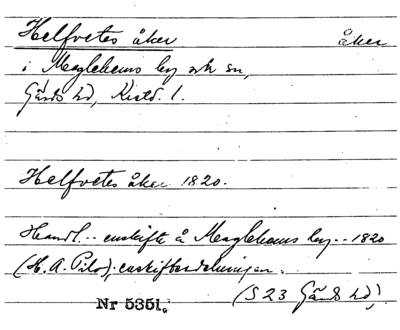 Helfvetes åker åker
i Maglehems by och sn,
Gärds hd, Kristd. l.
Helfvetes åker 1820.
Handl... enskifte å Maglehems by... 1820
(H. A. Pilo); enskiftesdelningen.
(S 23 Gärds hd)
Nr 5351.